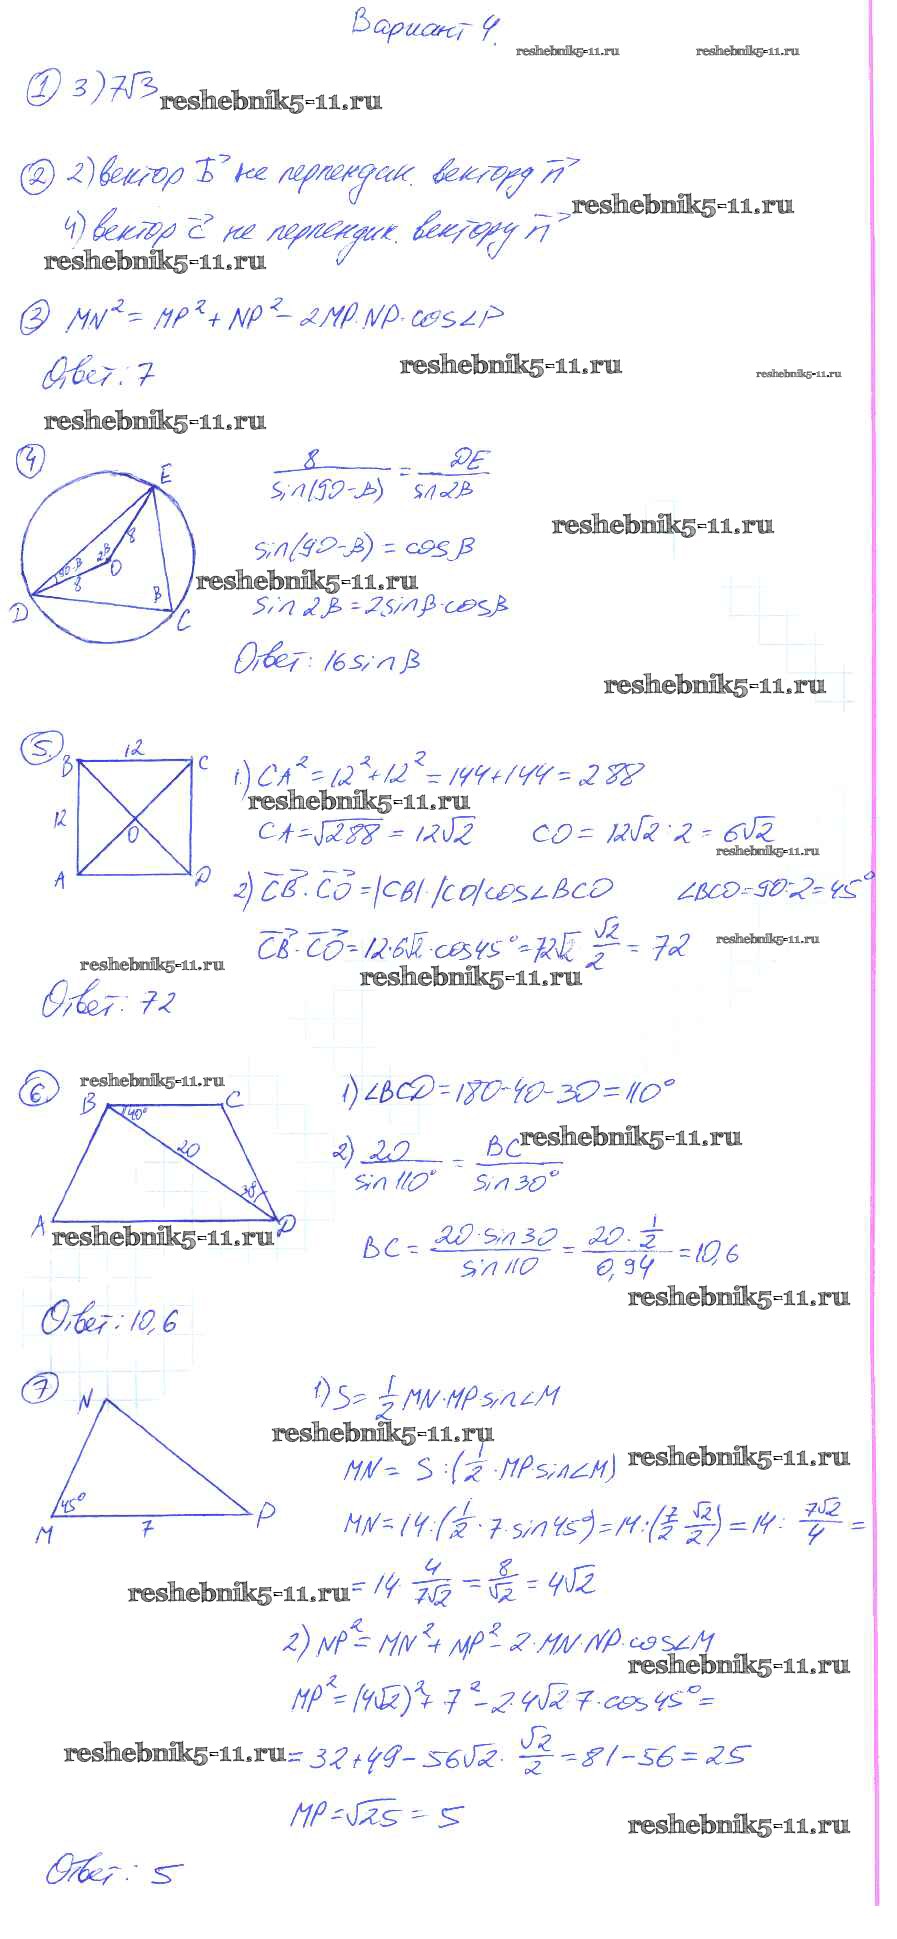 Вариант 4.
reshebnik5-11.ru reshebnik5-11.ru
① 3) 7√3
reshebnik5-11.ru
② 2) вектор b⃗ не перпендик. вектору n⃗
reshebnik5-11.ru
4) вектор c⃗ не перпендик. вектору n⃗
reshebnik5-11.ru
③ MN² = MP² + NP² - 2MP·NP·cos∠P
Ответ: 7
reshebnik5-11.ru reshebnik5-11.ru
reshebnik5-11.ru
④ 8/sin(90-β) = DE/sin2β
E
90-β 2β 8
8 O
D β C
reshebnik5-11.ru
sin(90-β) = cosβ
reshebnik5-11.ru
sin2β = 2sinβ·cosβ
Ответ: 16sinβ
reshebnik5-11.ru
5. B 12 C
12 O
A D
1.) CA² = 12² + 12² = 144 + 144 = 288
reshebnik5-11.ru
CA = √288 = 12√2 CO = 12√2 : 2 = 6√2
reshebnik5-11.ru
2) CB⃗ · CO⃗ = |CB|·|CO|cos∠BCO ∠BCO = 90:2 = 45°
CB⃗ · CO⃗ = 12·6√2·cos45° = 72√2 √2/2 = 72
reshebnik5-11.ru
reshebnik5-11.ru reshebnik5-11.ru
Ответ: 72
6. reshebnik5-11.ru
B C
40°
20
30
A D
reshebnik5-11.ru
1) ∠BCD = 180-40-30 = 110°
reshebnik5-11.ru
2) 20/sin110° = BC/sin30°
BC = 20·sin30/sin110 = 20·1/2/0,94 = 10,6
reshebnik5-11.ru
Ответ: 10,6
⑦ N
45°
M 7 P
1) S = 1/2 MN·MP sin∠M
reshebnik5-11.ru
reshebnik5-11.ru
MN = S : (1/2 · MP sin∠M)
MN = 14 : (1/2 · 7·sin45°) = 14 : (7/2 √2/2) = 14 : 7√2/4 =
reshebnik5-11.ru
= 14 · 4/7√2 = 8/√2 = 4√2
2) NP² = MN² + MP² - 2·MN·NP·cos∠M
reshebnik5-11.ru
MP² = (4√2)² + 7² - 2·4√2 7·cos45° =
reshebnik5-11.ru
= 32 + 49 - 56√2 · √2/2 = 81 - 56 = 25
MP = √25 = 5
reshebnik5-11.ru
Ответ: 5